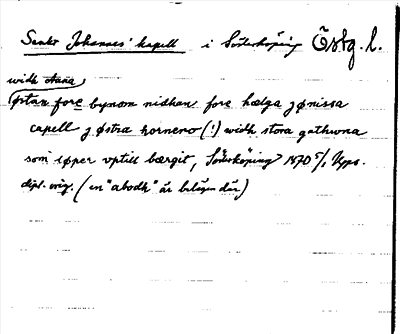 Sankt Johannes' kapell i Söderköping Östg. l.
widh ⁠aana
østan fore bynom nidhan fore hælga ȝønissa
capell ȝ østra hornero (!) widh stora gathwna
som iøper vptill bærgit, Söderköping 1470 5/1 Upps.
dipl. orig. (en "abodh" är belägen där)